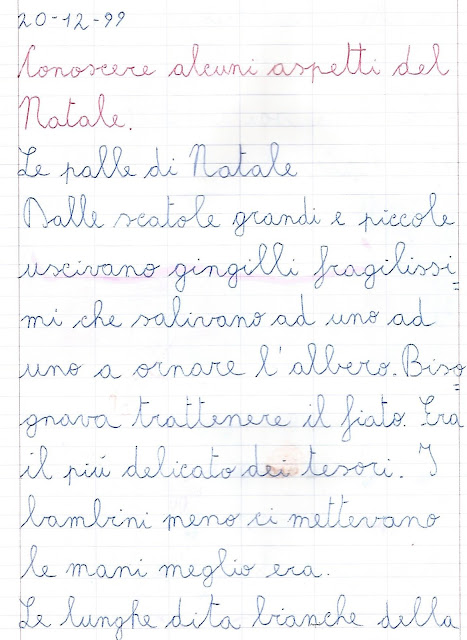 20-12-99
Conoscere alcuni aspetti del
Natale.
Le palle di Natale
Dalle scatole grandi e piccole
uscivano gingilli fragilissi=
mi che salivano ad uno ad
uno a ornare l'albero. Biso=
gnava trattenere il fiato. Era
il piú delicato dei tesori. I
bambini meno ci mettevano
le mani meglio era.
Le lunghe dita bianche della